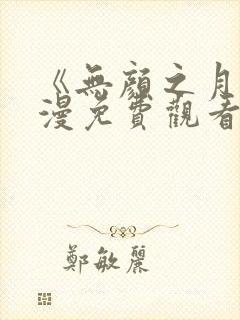 《無顏之月
漫免費觀看
鄭敏麗